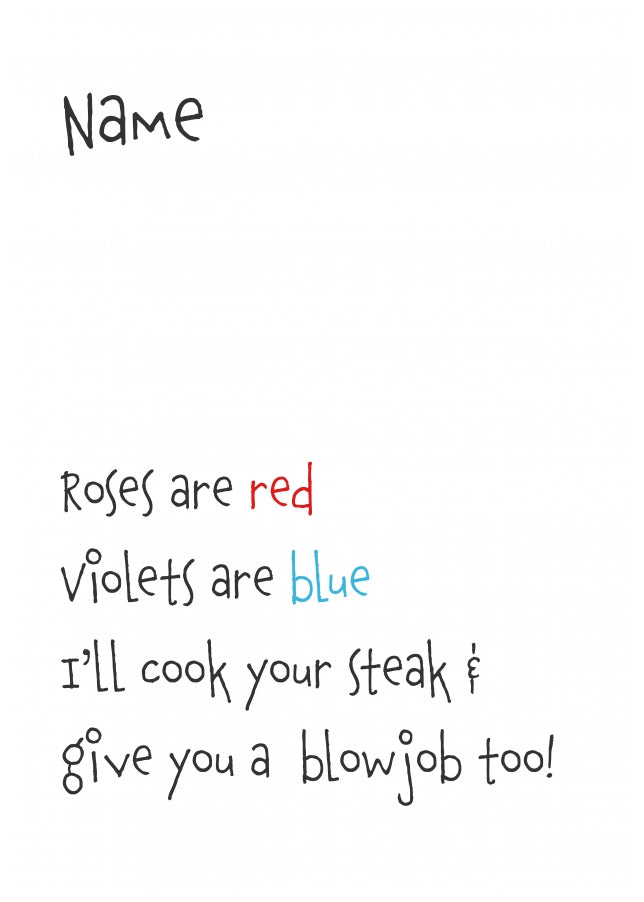 Name
Roses are red
Violets are blue
I'll cook your steak &
give you a blowjob too!